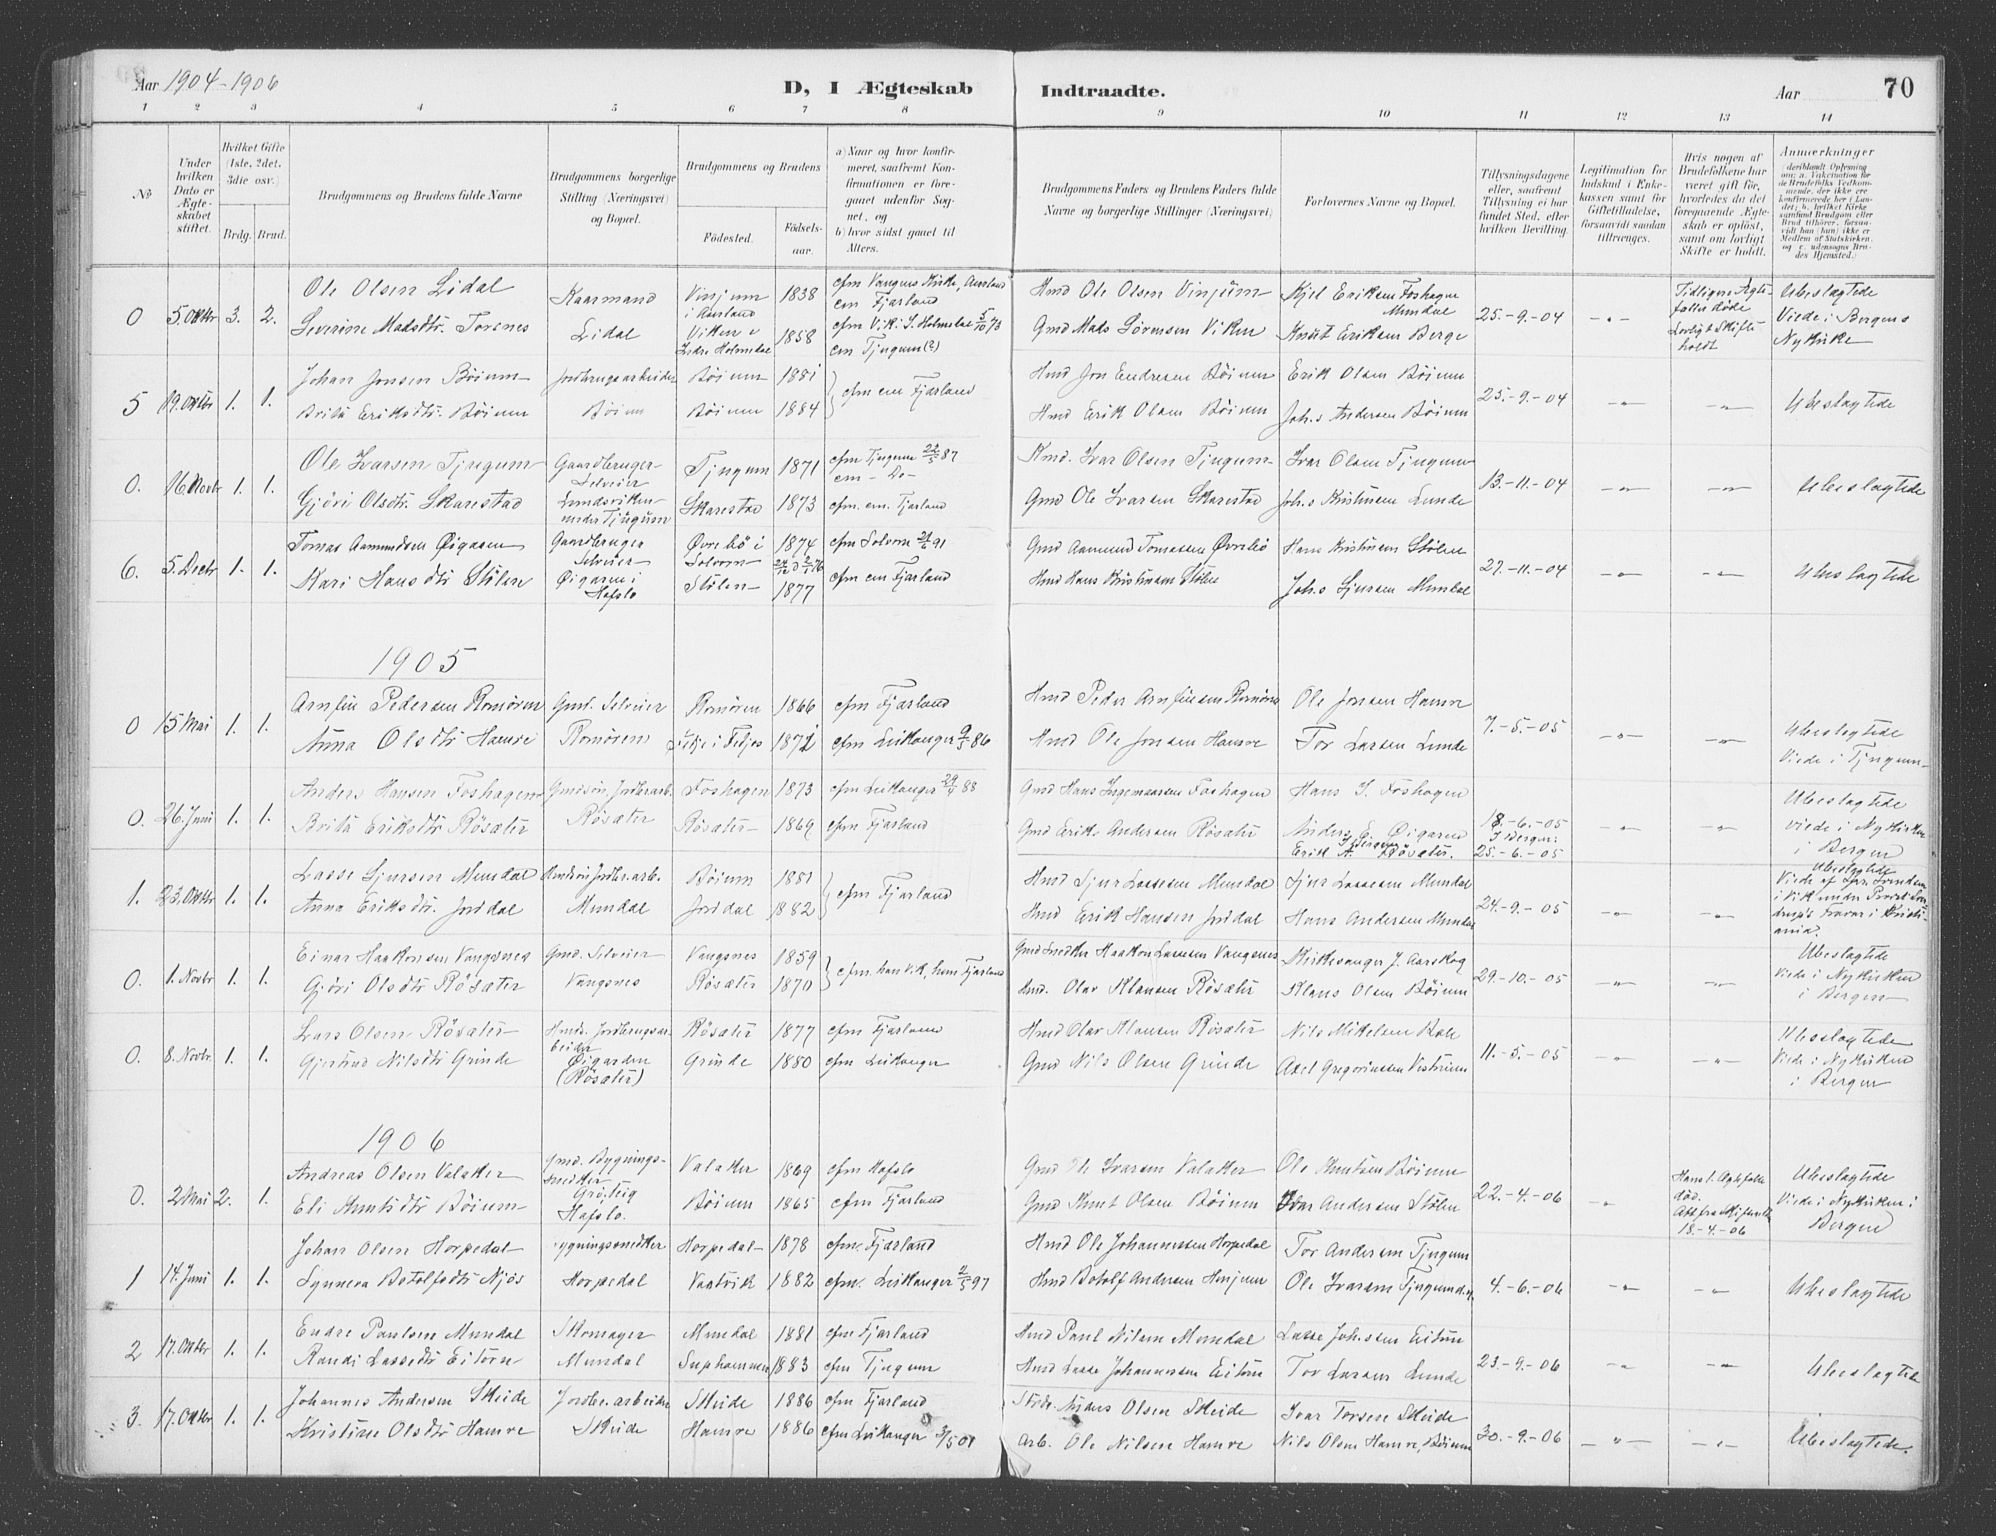 Aar 1904-1906
D, I Ægteskab Indtraadte.
Aar 70
1 2 3 4 5 6 7 8 9 10 11 12 13 14
No
Under hvilken Dato er Ægteskabet stiftet.
Hvilket Gifte (1ste, 2det, 3die osv.)
Brdg. Brud.
Brudgommens og Brudens fulde Navne
Brudgommens borgerlige Stilling (Næringsvei) og Bopæl.
Brudgommens og Brudens
Fødested.
Fødselsaar.
a) Naar og hvor konfirmeret, saafremt Konfirmationen er foregaaet udenfor Sognet, og
b) hvor sidst gaaet til Alters.
Brudgommens Faders og Brudens Faders fulde Navne og borgerlige Stillinger (Næringsvei)
Forlovernes Navne og Bopæl.
Tillysningsdagene eller, saafremt Tillysning ei har fundet Sted, efter hvilken Bevilling.
Legitimation for Indskud i Enkekassen samt for Giftetilladelse, forsaavidt saadan tiltrænges.
Hvis nogen af Brudefolkene har været gift før, hvorledes da det foregaaende Ægteskab er opløst, samt om lovligt Skifte er holdt.
Anmærkninger
0 5. Oktbr 3. 2.
Ole Olsen Lidal Kaarmand Vinjum i Aurland 1838 cfm Vangens Kirke, Aurland em Fjærland Hmd Ole Olsen Vinjum Kjel Eriksen Foshagne Mundal 25.-9.-04 Tidligere Ægtefæller døde Lovligt Skifte holdt Ubeslægtede Viede i Bergens Nykirke
Severine Madsdtr. Torsnes Lidal Viken i Indre Holmedal 1858 cfm Vik i I. Holmedal 5/10 73 em Tjugum (?) Gmd Mads Sörensen Viken Knut Eriksen Berge
5 19. Oktbr 1. 1.
Johan Jonsen Böium Jordbrugsarbeider Böium 1881 cfm em Fjærland Hmd Jon Endresen Böium Erik Olsen Böium 25.-9.-04 Ubeslægtede
Brita Eriksdtr. Böium Böium Böium 1884 Hmd Erik Olsen Böium Joh.s Andersen Böium
0. 16 Novbr 1. 1.
Ole Ivarsen Tjugum Gaardbruger Selveier Tjugum 1871 cfm Tjugum 22/5 87 em - Do - Kmd. Ivar Olsen Tjugum Ivar Olsen Tjugum 13.-11.-04 Ubeslægtede
Gjöri Olsdtr. Skarestad Lundeviken under Tjugum Skarestad 1873 cfm. em. Fjærland Gmd Ole Ivarsen Skarestad Joh.s Kristensen Lunde
6. 5. Decbr 1. 1.
Tomas Aamundsen Øigaren Gaardbruger Selveier Øvrebö i Solvorn 1874 cfm Solvorn 21/6 91 Gmd Aamund Tomassen Øvrebö Hans Kristensen Stölen 27.-11.-04 Ubeslægtede
Kari Hansdtr Stölen Øigaren i Hafslo Stölen 1877 cfm em Fjærland Hmd Hans Kristensen Stölen Joh.s Sjursen Mundal
1905
0 15 Mai 1. 1.
Arnfin Pedersen Romören Gmd. Selveier Romören 1866 cfm Fjærland Hmd Peder Arnfinsen Romören Ole Jonsen Hamre 7.-5.-05 Ubeslægtede Viede i Tjugum
Anna Olsdtr Hamre Romören Fetje i Fetjos 1872 cfm Leikanger 9/5 86 Hmd Ole Jonsen Hamre Tor Larsen Lunde
0. 26. Juni 1. 1.
Anders Hansen Foshagen Gmdsön, Jordbrarb. Foshagen 1873 cfm Leikanger 29/4 88 Gmd Hans Ingemaarsen Foshagen Hans I. Foshagen 18.-6.-05 I Bergen: 25.-6.-05 Ubeslægtede viede i Nykirken i Bergen
Brita Eriksdtr Rösæter Rösæter Rösæter 1869 cfm Fjærland Gmd Erik Andersen Rösæter Anders E. Øigaren I Bergen Erik A. Rösæter.
1. 23. Oktbr 1. 1.
Lasse Sjursen Mundal Hmdsön Jordbr. arb. Böium 1881 cfm Fjærland Hmd Sjur Lassesen Mundal Sjur Lassesen Mundal 24.-9.-05 Ubeslægtede
Anna Eriksdtr. Jordal Mundal Jordal 1882 Hmd Erik Hansen Jordal Hans Andersen Mundal
0. 1. Novbr 1. 1.
Einar Haakonsen Vangsnes Gmd. Selveier Vangsnes 1859 cfm. han Vik, hun Fjærland Gmd Snedker Haakon Larsen Vangsnes Kirkesanger J. Aarskog 29.-10.-05 Ubeslægtede Viede i Nykirken i Bergen
Gjöri Olsdtr Rösæter Vangsnes Rösæter 1870 Hmd. Olav Klausen Rösæter Klaus Olsen Böium
0. 8. Novbr. 1. 1.
Lars Olsen Rösæter Hmds. Jordbrugsarbeider Rösæter 1877 cfm Fjærland Hmd Olav Klausen Rösæter Nils Mikelsen Bale 11.-5.-05 Ubeslægtede Viede i Nykirken i Bergen
Gjertrud Nilsdtr Grinde Øigarden (Rösæter) Grinde 1880 cfm Leikanger Gmd Nils Olsen Grinde Axel Gregoriussen Vestrum
1906
0. 2 Mai 2. 1.
Andreas Olsen Valaker Gmd. Bygningssnedker Valaker 1869 cfm Hafslo Gmd Ole Ivarsen Valaker Ole Knutsen Böium 22.-4.-06 Hans 1. Ægtefælle död. Att. fra Skifteretten 18-4-06 Ubeslægtede Viede i Nykirken i Bergen
Eli Knutsdtr Böium Hafslo. Böium 1865 cfm Fjærland Gmd Knut Olsen Böium Ivar Andersen Stölen
1 14. Juni 1. 1.
Johan Olsen Horpedal Bygningssnedker Horpedal 1878 cfm. Fjærland Hmd Ole Johannessen Horpedal Tor Andersen Tjugum 4.-6.-06 Ubeslægtede
Synneva Botolfsdtr Njös Horpedal Vaatvik 1882 cfm. Leikanger 2/5 97 Hmd Botolf Andersen Henjum Ole Ivarsen Tjugum
2 17. Oktbr 1. 1.
Endre Paulsen Mundal Skomager Mundal 1881 cfm Fjærland Hmd Paul Nilsen Mundal Lasse Johs.sen Eitorn 23.-9.-06 Ubeslægtede
Randi Lassedtr Eitorn Mundal Suphammer 1883 cfm Tjugum Hmd Lasse Johannessen Eitorn Tor Larsen Lunde
3. 17. Oktbr 1. 1.
Johannes Andersen Skeide Jordbr. arbeider Skeide 1886 cfm Fjærland Anders Olsen Skeide Ivar Torsen Skeide 30.-9.-06 Ubeslægtede.
Kristine Olsdtr Hamre Skeide Hamre 1886 cfm Leikanger 3/5 01 Arb. Ole Nilsen Hamre Nils Olsen Hamre, Böium